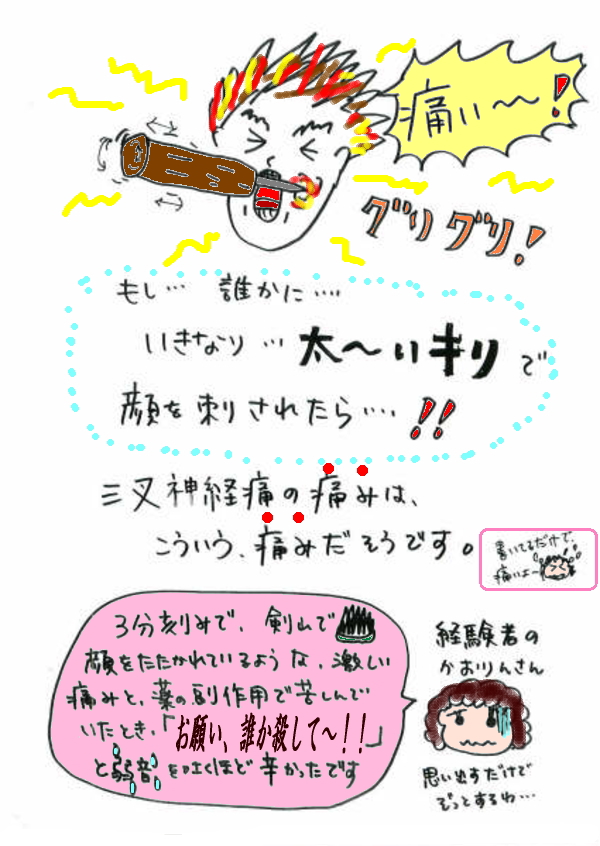 痛い〜!
グリグリ!
もし… 誰かに….
いきなり… 太〜いキリで
顔を刺されたら….!!
三叉神経痛の痛みは、
こういう、痛みだそうです。
書いてるだけで、
痛いよ〜
3分刻みで、剣山で
顔をたたかれているような、激しい
痛みと、薬の副作用で苦しんで
いたとき、「お願い、誰か殺して〜!!」
と弱音を吐くほど辛かったです
経験者の
かおりんさん
思い出すだけで
ぞっとするわ…